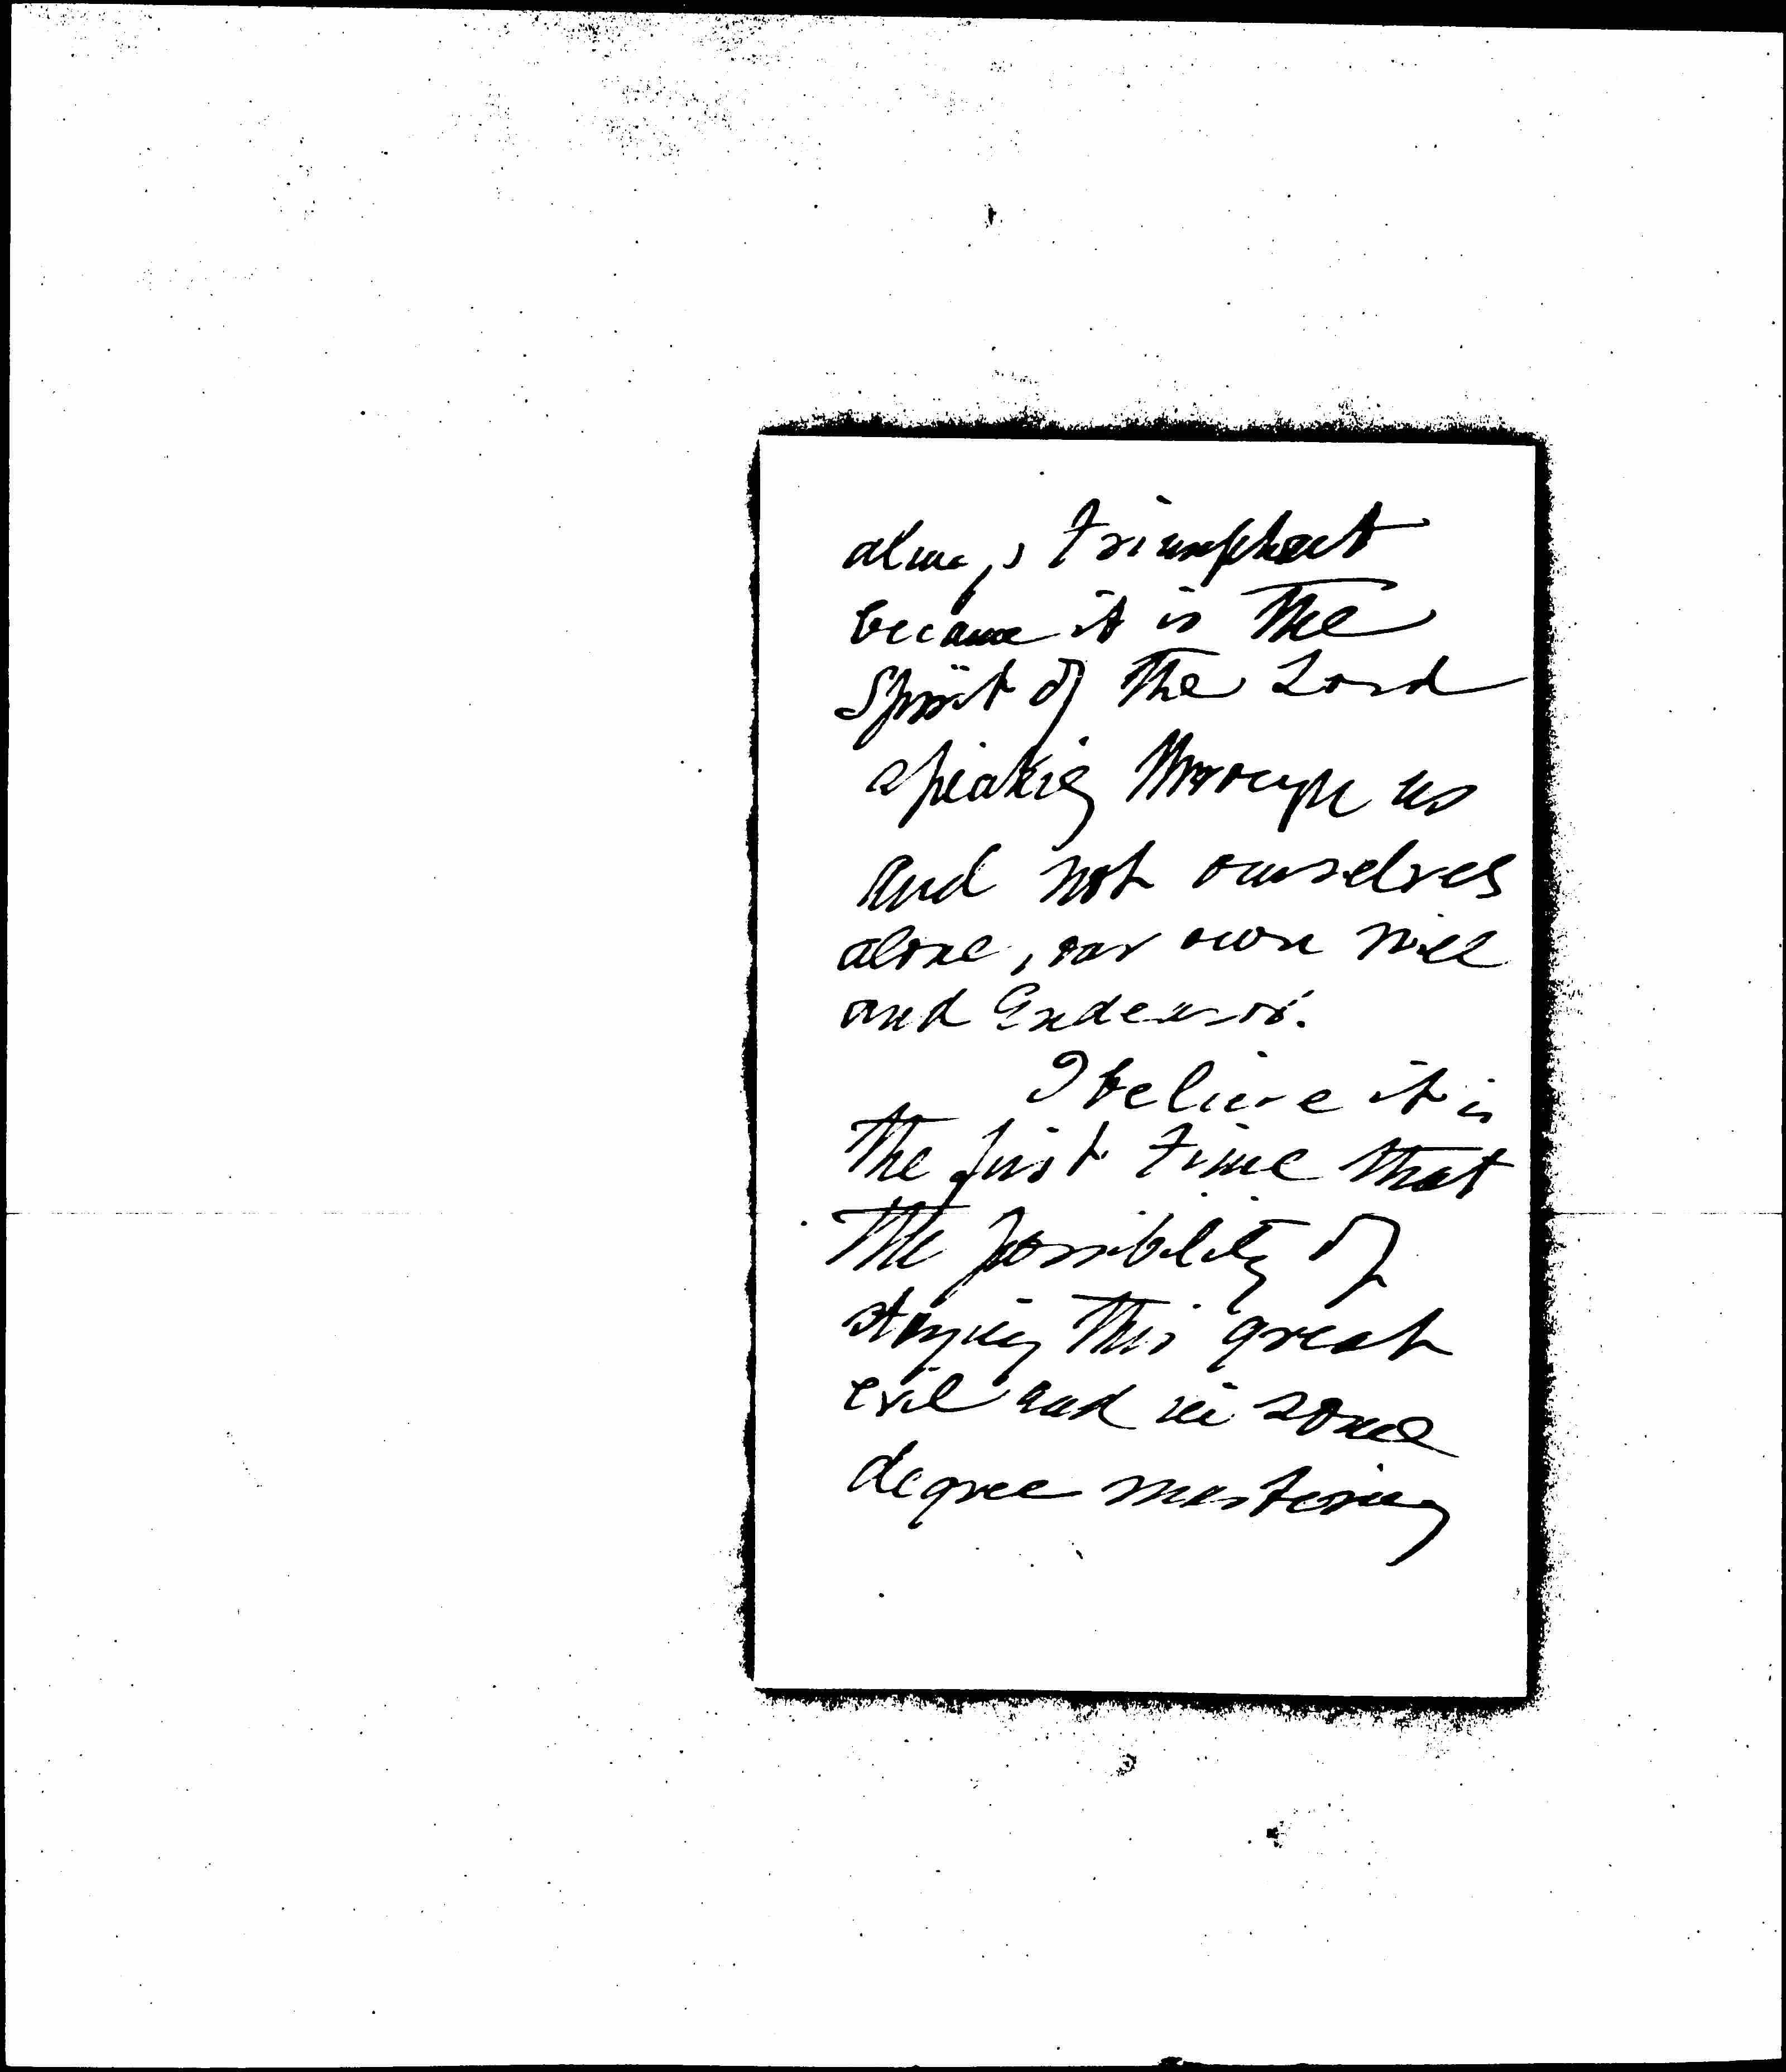 always triumphant
because it is the
Spirit of the Lord
speaking through us
and not ourselves
alone, our own will
and Endeavor.
I believe it is
the first time that
the possibility of
staying this great
evil and in some
degree mastering